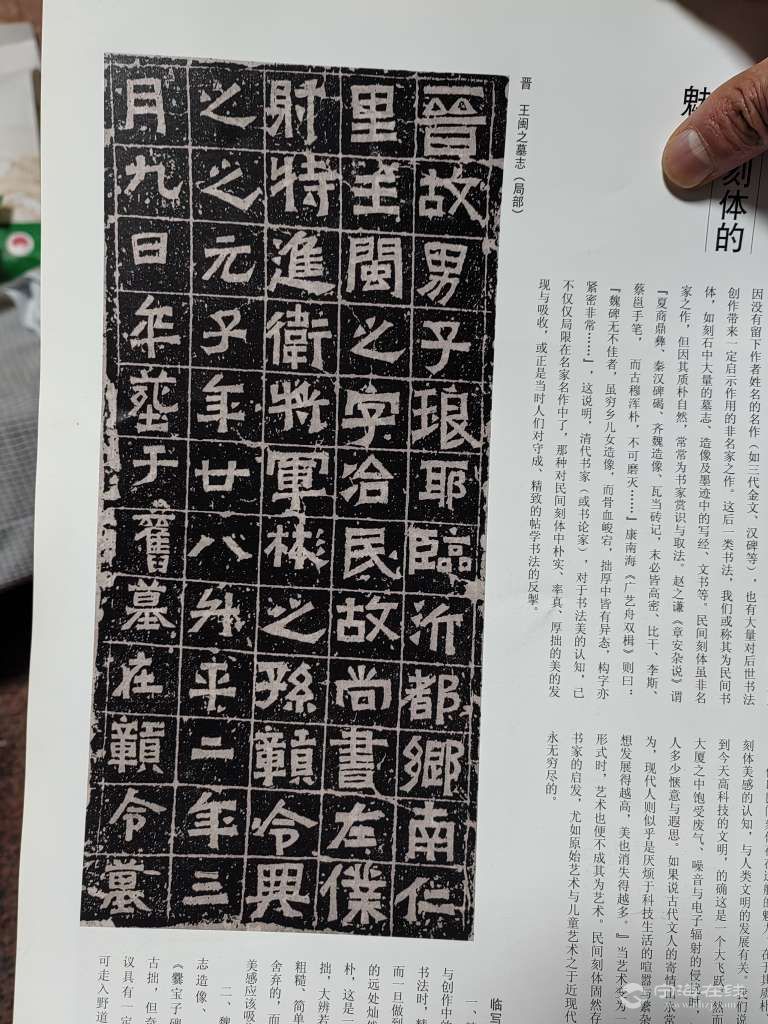 刻体的
魅
因没有留下作者姓名的名作（如三代金文、汉碑等），也有大量对后世书法
创作带来一定启示作用的非名家之作。这后一类书法，我们或称其为民间书
体，如刻石中大量的墓志、造像及墨迹中的写经、文书等。民间刻体虽非名
家之作，但因其质朴自然，常常为书家赏识与取法。赵之谦《章安杂说》谓
『夏商鼎彝、秦汉碑碣、齐魏造像、瓦当砖记，未必皆高密、比干、李斯、
蔡邕手笔，而古穆浑朴，不可磨灭……』康南海《广艺舟双楫》则曰：
『魏碑无不佳者，虽穷乡儿女造像，而骨血峻宕，拙厚中皆有异态，构字亦
紧密非常……』，这说明，清代书家（或书论家），对于书法美的认知，已
不仅仅局限在名家名作中了，那种对民间刻体中朴实、率真、厚拙的美的发
现与吸收，或正是当时人们对守成、精致的帖学书法的反掣。
刻体美感的认知，与人类文明的发展有关。我们说
到今天高科技的文明，的确这是一个大飞跃，然而
大厦之中饱受废气、噪音与电子辐射的侵
人多少惬意与遐思。如果说古代文人的寄情
为，现代人则似乎是厌烦于科技生活的喧嚣
想发展得越高，美也消失得越多。』当艺术
形式时，艺术也便不成其为艺术。民间刻体固然存
书家的启发，尤如原始艺术与儿童艺术之于近现代
永无穷尽的。
晋 王闽之墓志（局部）
晉故男子琅耶臨沂都鄉南仁
里王閩之字冶民故尚書左僕
射特進衛將軍彬之孫贛令興
之之元子年廿八升平二年三
月九日卒葬于舊墓在贛令墓
临写
与创作中的
书法时，精
而一旦做到
的远处灿
朴，这是一
拙，大辨若
粗糙、简单
舍弃的，而
美感应该吸
二、魏
志造像、
《爨宝子碑
古拙，但奇
议具有一定
可走入野道
宁海在线